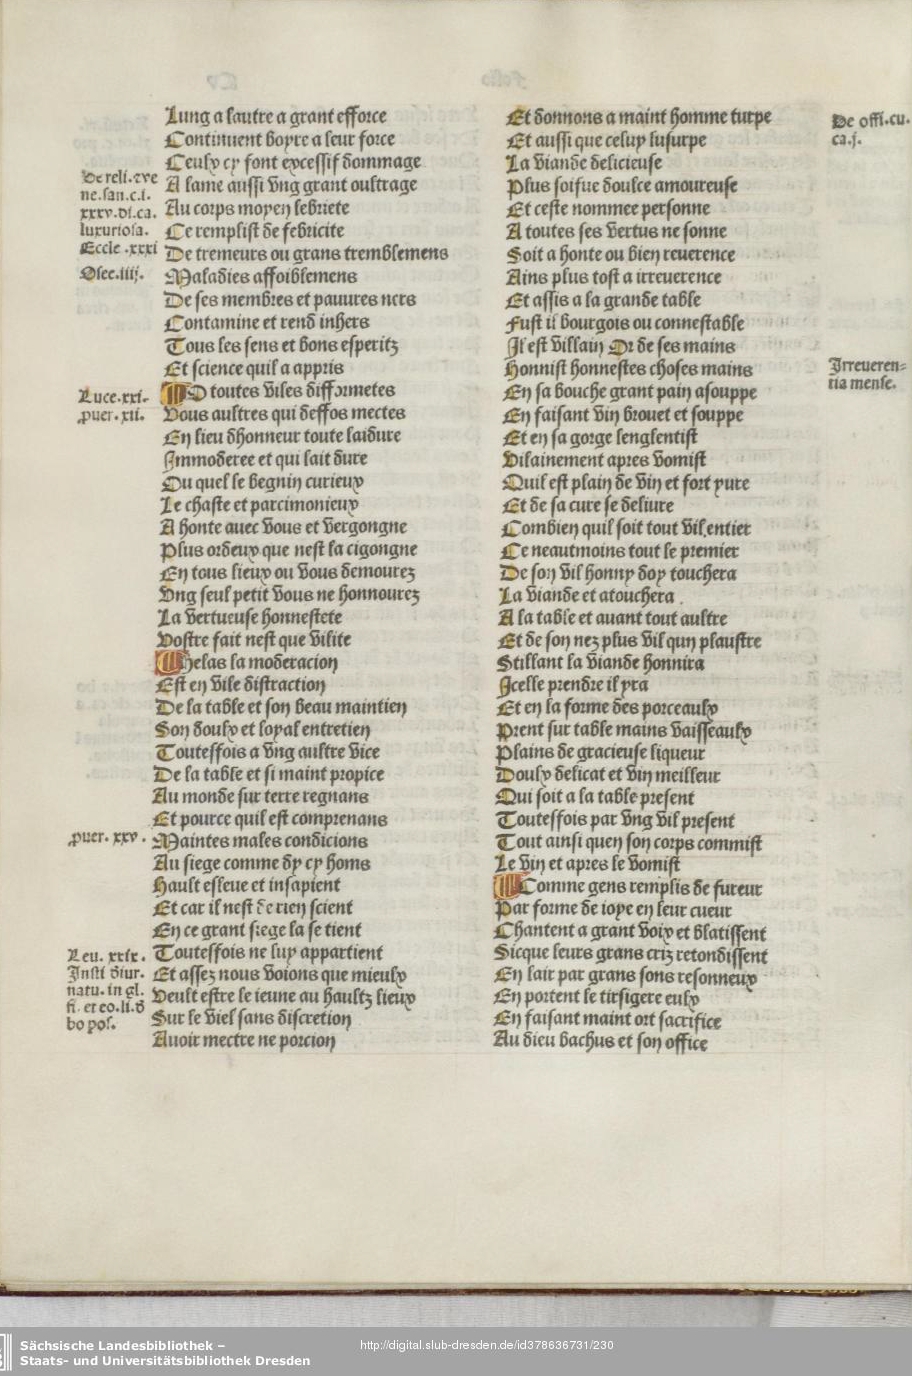 Lung a lautre a grant efforce
Continuent boyre a leur force
Ceulx cy font excessif dommage
A lame aussi vng grant oultrage
Au corps moyen lebriete
Ce remplist de febricite
De tremeurs ou grans tremblemens
Maladies affoiblemens
De ses membres et pauures ners
Contamine et rend inhers
Tous les sens et bons esperitz
Et science quil a appris
O toutes viles difformetes
Vous aultres qui deffos mectes
En lieu dhonneur toute laidure
Immoderee et qui lait dure
Ou quel le begnin curieux
Le chaste et parcimonieux
A honte auec vous et vergongne
Plus ordeux que nest la cigongne
En tous lieux ou vous demourez
Vng seul petit vous ne honnourez
La vertueuse honnestete
Vostre fait nest que vilite
helas la moderacion
Est en vile distraction
De la table et son beau maintien
Son doulx et loyal entretien
Toutesfois a vng aultre vice
De la table et si maint propice
Au monde sur terre regnans
Et pource quil est comprenans
Maintes males condicions
Au siege comme dy cy homs
Hault esleue et insapient
Et car il nest de rien scient
En ce grant siege la se tient
Toutesfois ne luy appartient
Et assez nous voions que mieulx
Veult estre le ieune au haultz lieux
Sur le viel sans discretion
Auoir mectre ne porcion
De reli. et ve
ne. san. c. i.
xxxv. di. ca.
luxuriosa.
Eccle .xxxi
Osee. iiij.
Luce. xxi.
puer. xii.
puer. xxv.
Leu. xxix.
Insti diur.
natu. in gl.
fi. et eo. li. d
bo pos.
Et donnons a maint homme turpe
Et aussi que celuy lusurpe
La viande delicieuse
Plus soifue doulce amoureuse
Et ceste nommee personne
A toutes ses vertus ne sonne
Soit a honte ou bien reuerence
Ains plus tost a irreuerence
Et assis a la grande table
Fust il bourgois ou connestable
Il est villain Or de ses mains
Honnist honnestes choses mains
En sa bouche grant pain asouppe
En faisant vin brouet et souppe
Et en sa gorge lenglentist
Vilainement apres vomist
Quil est plain de vin et fort yure
Et de sa cure se deliure
Combien quil soit tout vil entier
Ce neautmoins tout le premier
De son vil honny doy touchera
La viande et atouchera .
A la table et auant tout aultre
Et de son nez plus vil qun plaustre
Stillant la viande honnira
Icelle prendre il yra
Et en la forme des porceaulx
Prent sur table mains vaisseaulx
Plains de gracieuse liqueur
Doulx delicat et vin meilleur
Qui soit a la table present
Toutesfois par vng vil present
Tout ainsi quen son corps commist
Le vin et apres le vomist
Comme gens remplis de fureur
Par forme de ioye en leur cueur
Chantent a grant voix et blatissent
Sicque leurs grans criz retondissent
En lair par grans sons resonneux
En portent le tirsigere eulx
En faisant maint ort sacrifice
Au dieu bachus et son office
De offi. cu.
ca. j.
Irreueren-
tia mense.
Sächsische Landesbibliothek –
Staats- und Universitätsbibliothek Dresden
http://digital.slub-dresden.de/id378636731/230